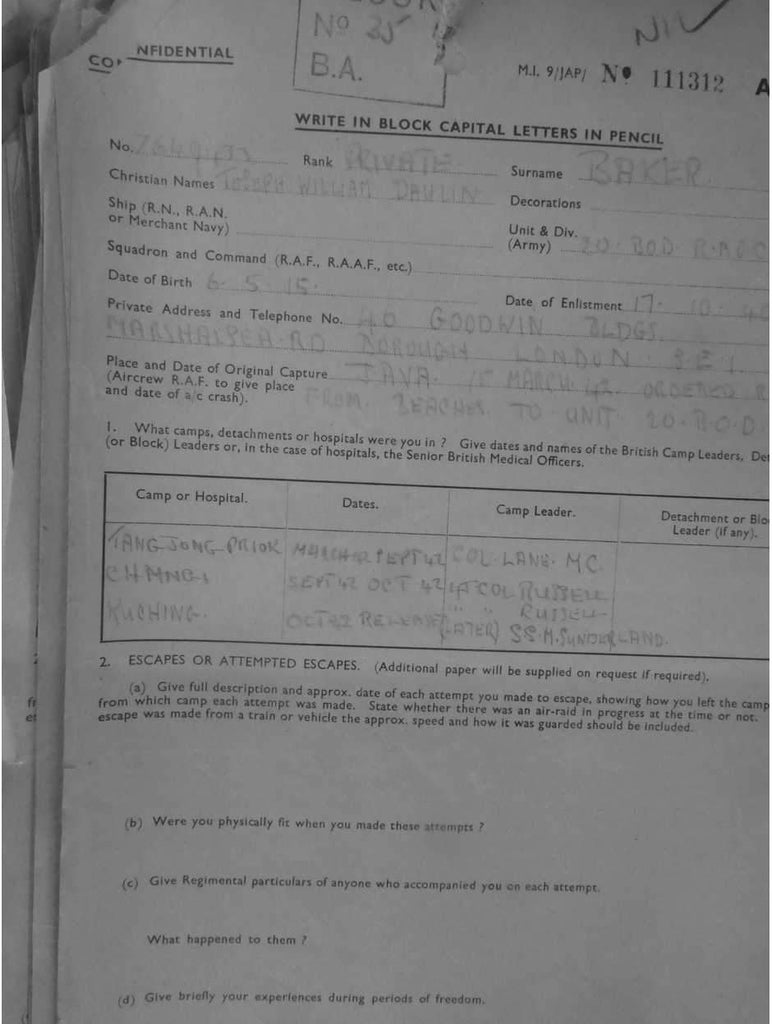 No 25
B.A.
NIL
CONFIDENTIAL
M.I. 9/JAP/ No 111312 A
WRITE IN BLOCK CAPITAL LETTERS IN PENCIL
No. Rank PRIVATE Surname BAKER
Christian Names JOSEPH WILLIAM Decorations
Ship (R.N., R.A.N.
or Merchant Navy)
Unit & Div.
(Army) 20. BOD. R.A.O.C
Squadron and Command (R.A.F., R.A.A.F., etc.)
Date of Birth 6. 5. 15. Date of Enlistment 17. 10. 40
Private Address and Telephone No. 40 GOODWIN BLDGS.
MARSHALSEA RD BOROUGH LONDON S.E.1
Place and Date of Original Capture JAVA. 15 MARCH 42. ORDERED
(Aircrew R.A.F. to give place FROM BEACHES TO UNIT 20. B.O.D
and date of a/c crash).
1. What camps, detachments or hospitals were you in ? Give dates and names of the British Camp Leaders, Det
(or Block) Leaders or, in the case of hospitals, the Senior British Medical Officers.
Camp or Hospital. Dates. Camp Leader. Detachment or Blo
Leader (if any).
TANGJONG PRIOK MARCH 42 SEPT 42 COL. LANE. M.C.
CHANGI SEPT 42 OCT 42 COL RUSSELL
KUCHING. OCT 42 RELEASE " " RUSSELL
(LATER) S.S.M. SUNDERLAND.
2. ESCAPES OR ATTEMPTED ESCAPES. (Additional paper will be supplied on request if required).
(a) Give full description and approx. date of each attempt you made to escape, showing how you left the camp
from which camp each attempt was made. State whether there was an air-raid in progress at the time or not.
escape was made from a train or vehicle the approx. speed and how it was guarded should be included.
(b) Were you physically fit when you made these attempts ?
(c) Give Regimental particulars of anyone who accompanied you on each attempt.
What happened to them ?
(d) Give briefly your experiences during periods of freedom.